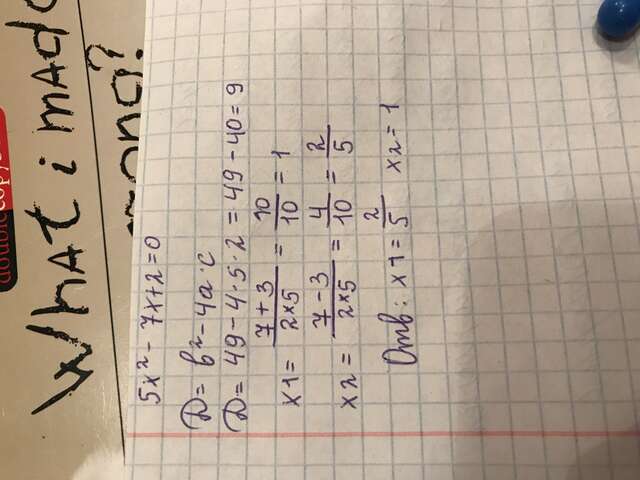 doublecopy
What i made
wrong?
5x² - 7x+2=0
D= b²-4a·c
D= 49-4·5·2 = 49-40= 9
x1= 7+3/2×5 = 10/10 = 1
x2 = 7-3/2×5 = 4/10 = 2/5
Отв: x1= 2/5 x2= 1